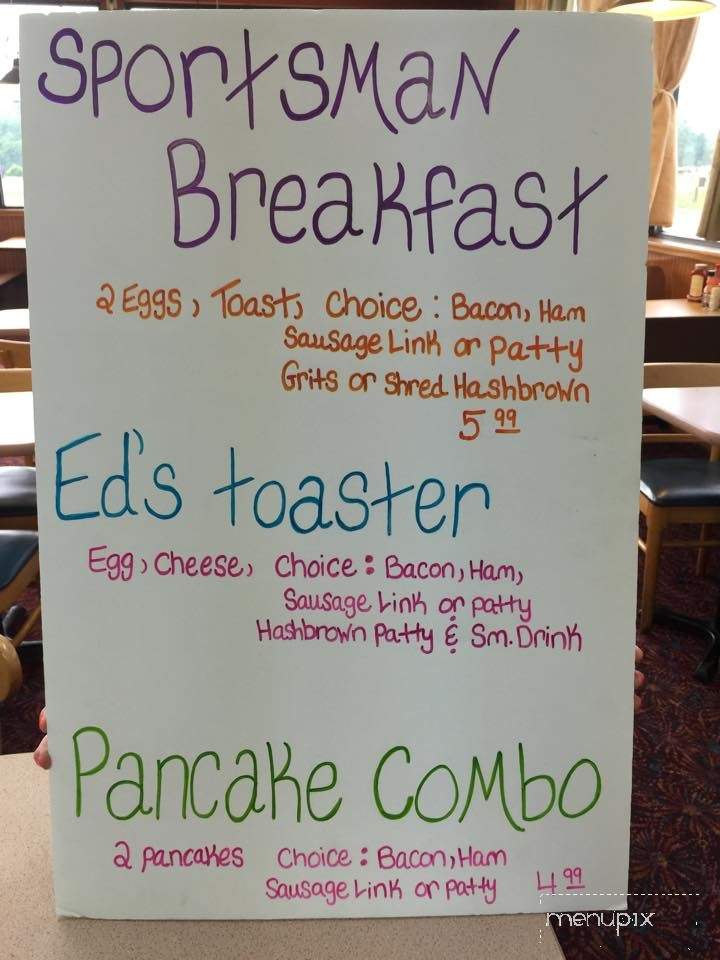 Sportsman
Breakfast
2 Eggs, Toast, Choice: Bacon, Ham
Sausage Link or patty
Grits or Shred Hashbrown
5 99
Ed's toaster
Egg, Cheese, Choice: Bacon, Ham,
Sausage Link or patty
Hashbrown patty & Sm. Drink
Pancake Combo
2 pancakes Choice: Bacon, Ham
Sausage Link or patty 4 99
menupix